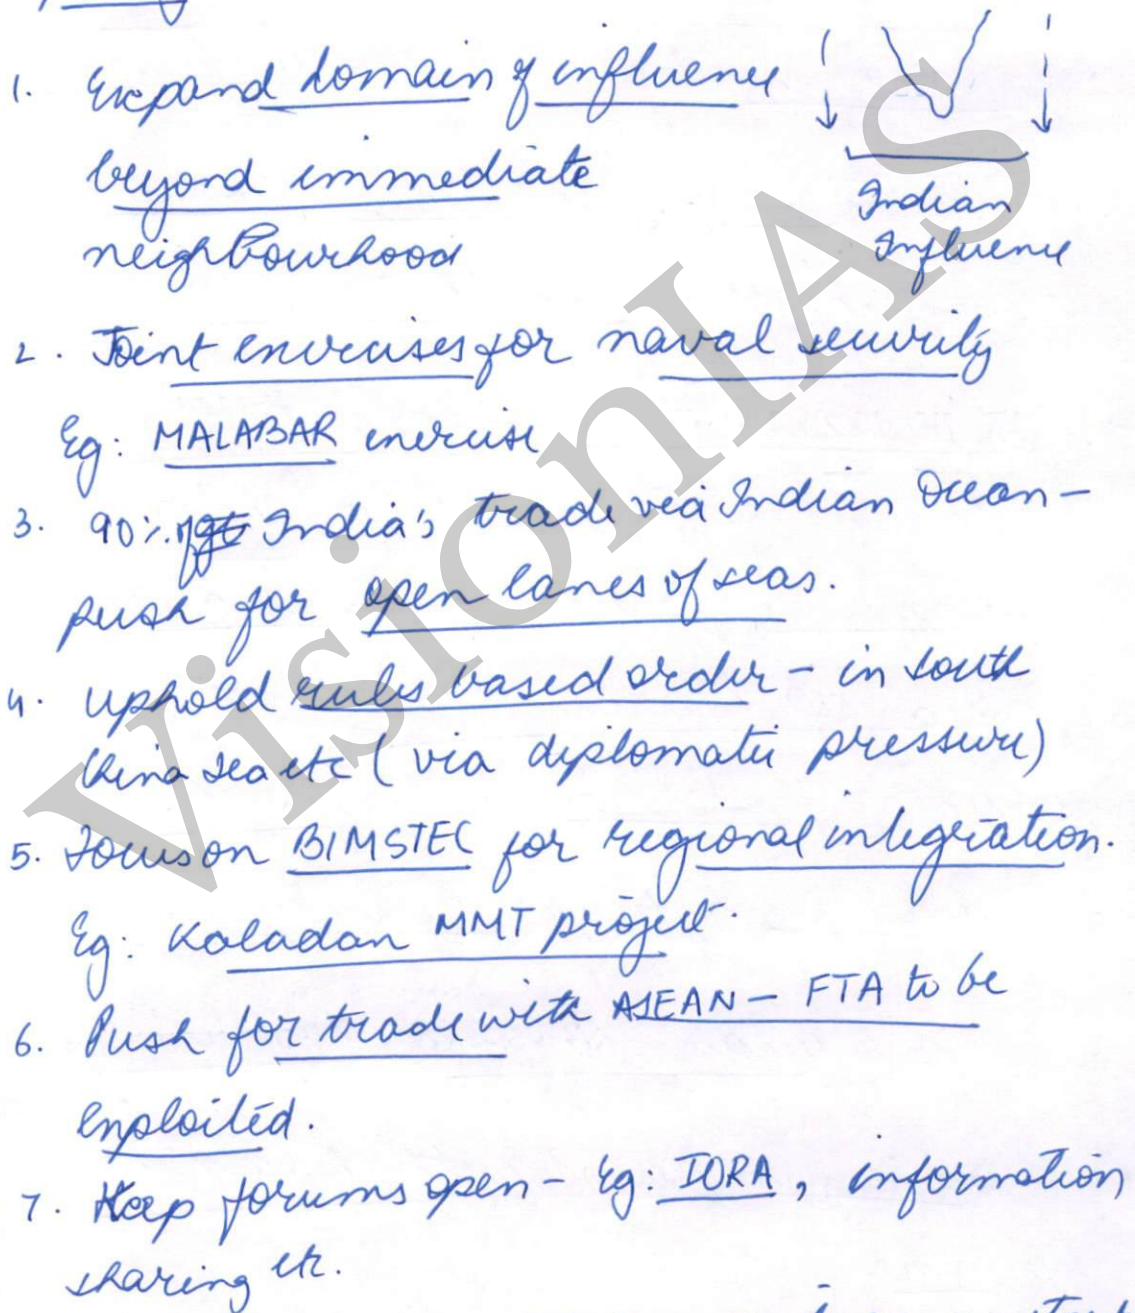 1. Expand domain of influence
beyond immediate
neighbourhood
Indian
Influence
2. Joint exercises for naval security
Eg: MALABAR exercise
3. 90% of India's trade via Indian Ocean -
push for open lanes of seas.
4. Uphold rules based order - in South
China Sea etc (via diplomatic pressure)
5. Focus on BIMSTEC for regional integration.
Eg: Kaladan MMT project.
6. Push for trade with ASEAN - FTA to be
exploited.
7. Keep forums open - Eg: IORA, information
sharing etc.
VisionIAS